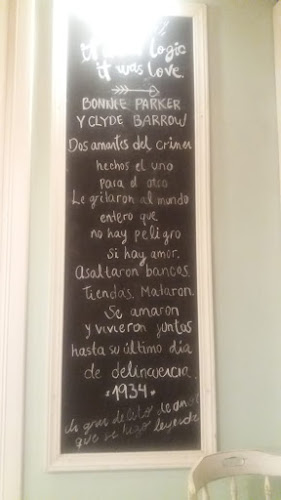 logic
it was love
BONNIE PARKER
Y CLYDE BARROW
Dos amantes del crimen
hechos el uno
para el otro
Le gritaron al mundo
entero que
no hay peligro
si hay amor.
Asaltaron bancos,
Tiendas. Mataron.
Se amaron
y vivieron juntos
hasta su último día
de delincuencia.
·1934·
delito de amor
que se hizo leyenda